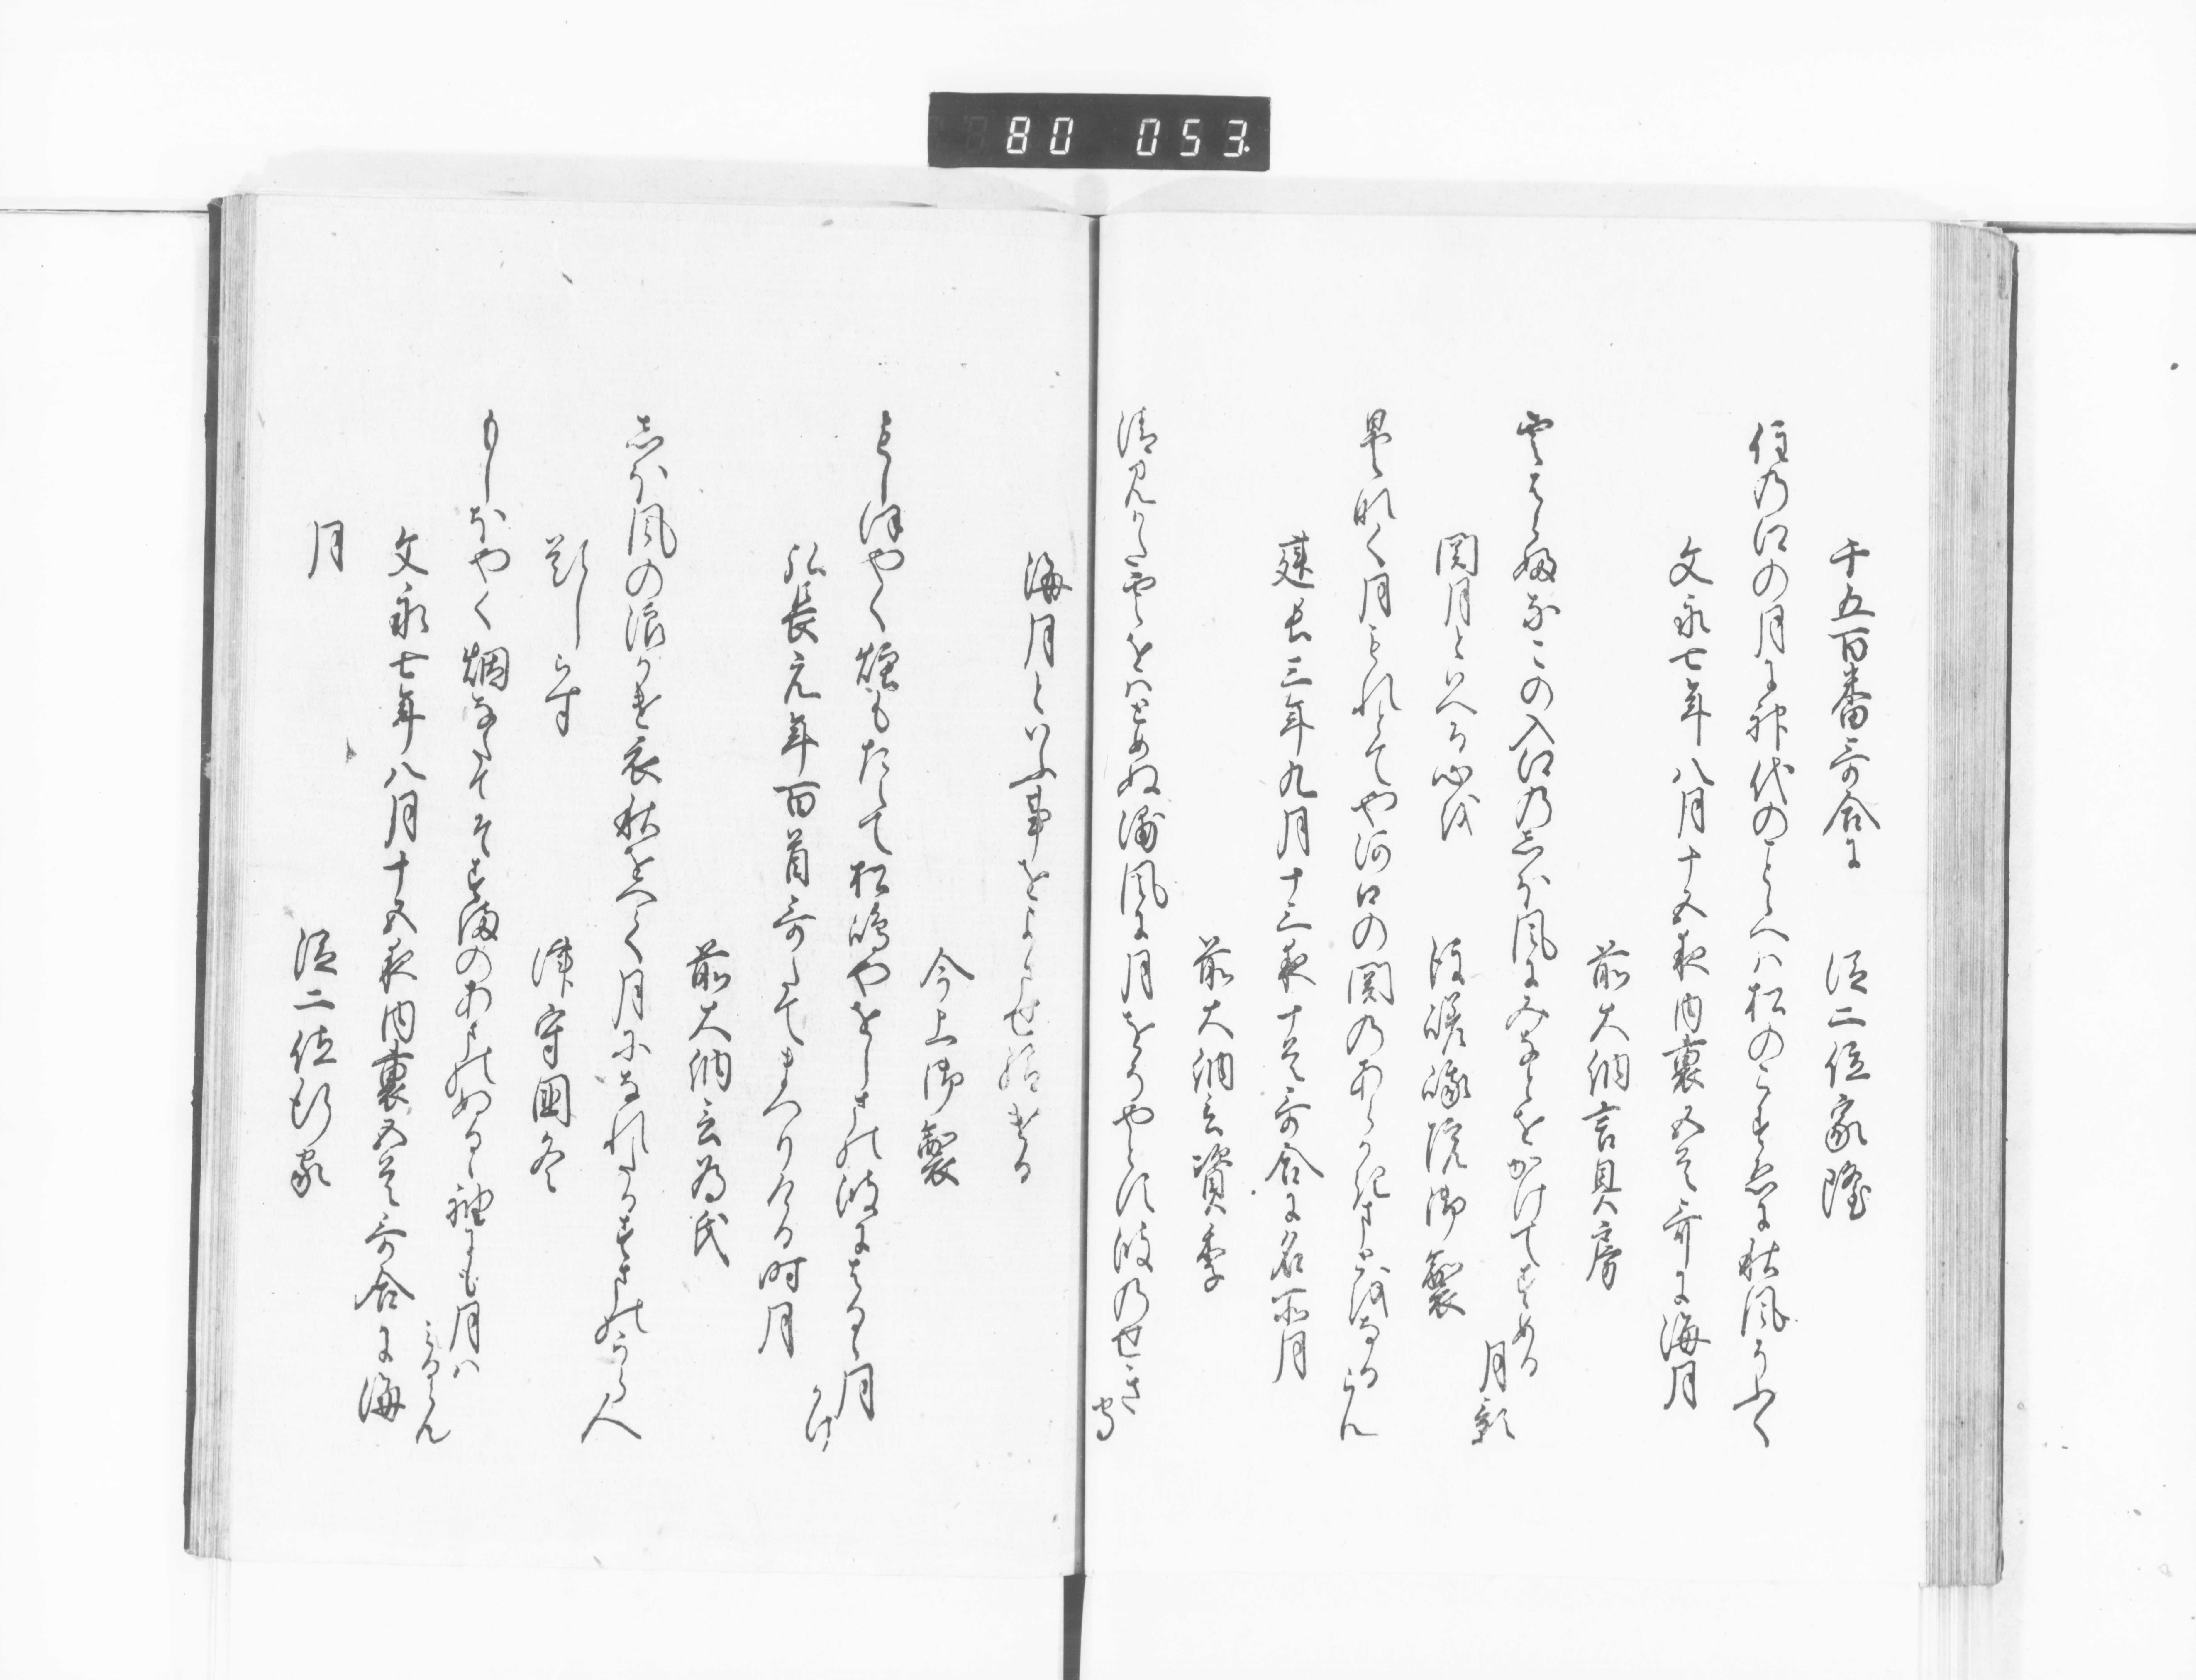 80 053.
千五百番哥合に 従二位家隆
住の江の月に神代のことゝへは松のこすゑに秋風そふく
文永七年八月十五夜内裏五首哥に海月
前大納言具房
雲はらふなこの入江のしほ風にみなとをかけてすめる月影
関月といへる心を 後嵯峨院御製
早くれはてや河口の関の
建長三年九月十三夜十首哥合に名所月
前大納言資季
清見かた雲をはとめぬ浦風に月をそやとす波のせき守
海月といふ事をよませ給ける
今上御製
もしほやく煙もたえて松嶋やをしまの波にはるゝ月かけ
弘長元年百首哥たてまつりける時月
前大納言為氏
しほ風の浪かけ衣秋をへて月になれたるすまのうら人
題しらす
津守国冬
もしほやく烟なたてそすまのあまのぬるゝ袖にも月はみるらん
文永七年八月十五夜内裏五首哥合に海
月 従二位行家